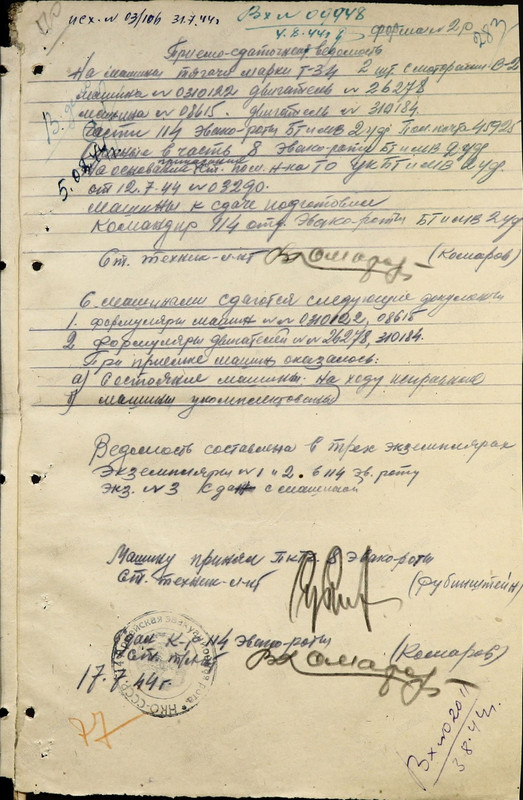 исх. № 03/106 31.7.44г
Вх № 00948
4.8.44г
форма № 20
283
Приемо-сдаточная ведомость
На машины тягачи марки Т-34 2 шт. с моторами В-2
машина № 0310122 двигатель № 26278
машина № 08615. двигатель № 310184.
части 114 Эвако-роты БТ и МВ 2 уд. Пол. почта 45925
в часть 8 Эвако-роты БТ и МВ 2 уд
На основании приказания Ст. пом. н-ка ТО УК БТ и МВ 2 уд.
от 12.7.44 № 03290.
5.08.44г
Машины к сдаче подготовил
Командир 114 отд. Эвако-роты БТ и МВ 2 уд
Ст. техник-л-нт (Комаров)
С машинами сдаются следующие документы
1. формуляры машин № № 0310122, 08615
2. формуляры двигателей № № 26278, 310184.
При приемке машин оказалось:
а) Состояние машины: на ходу исправные
б) машины укомплектованы
Ведомость составлена в трех экземплярах
Экземпляры № 1 и 2 в 114 эв. роту
экз. № 3 с машиной
Машину принял 8 Эвако-роты
Ст. техник-л-нт (Рубинштейн)
Сдал К-р 114 Эвако-роты
Ст. (Комаров)
17. 44г
77
Вх № 02011
3.8.44г.